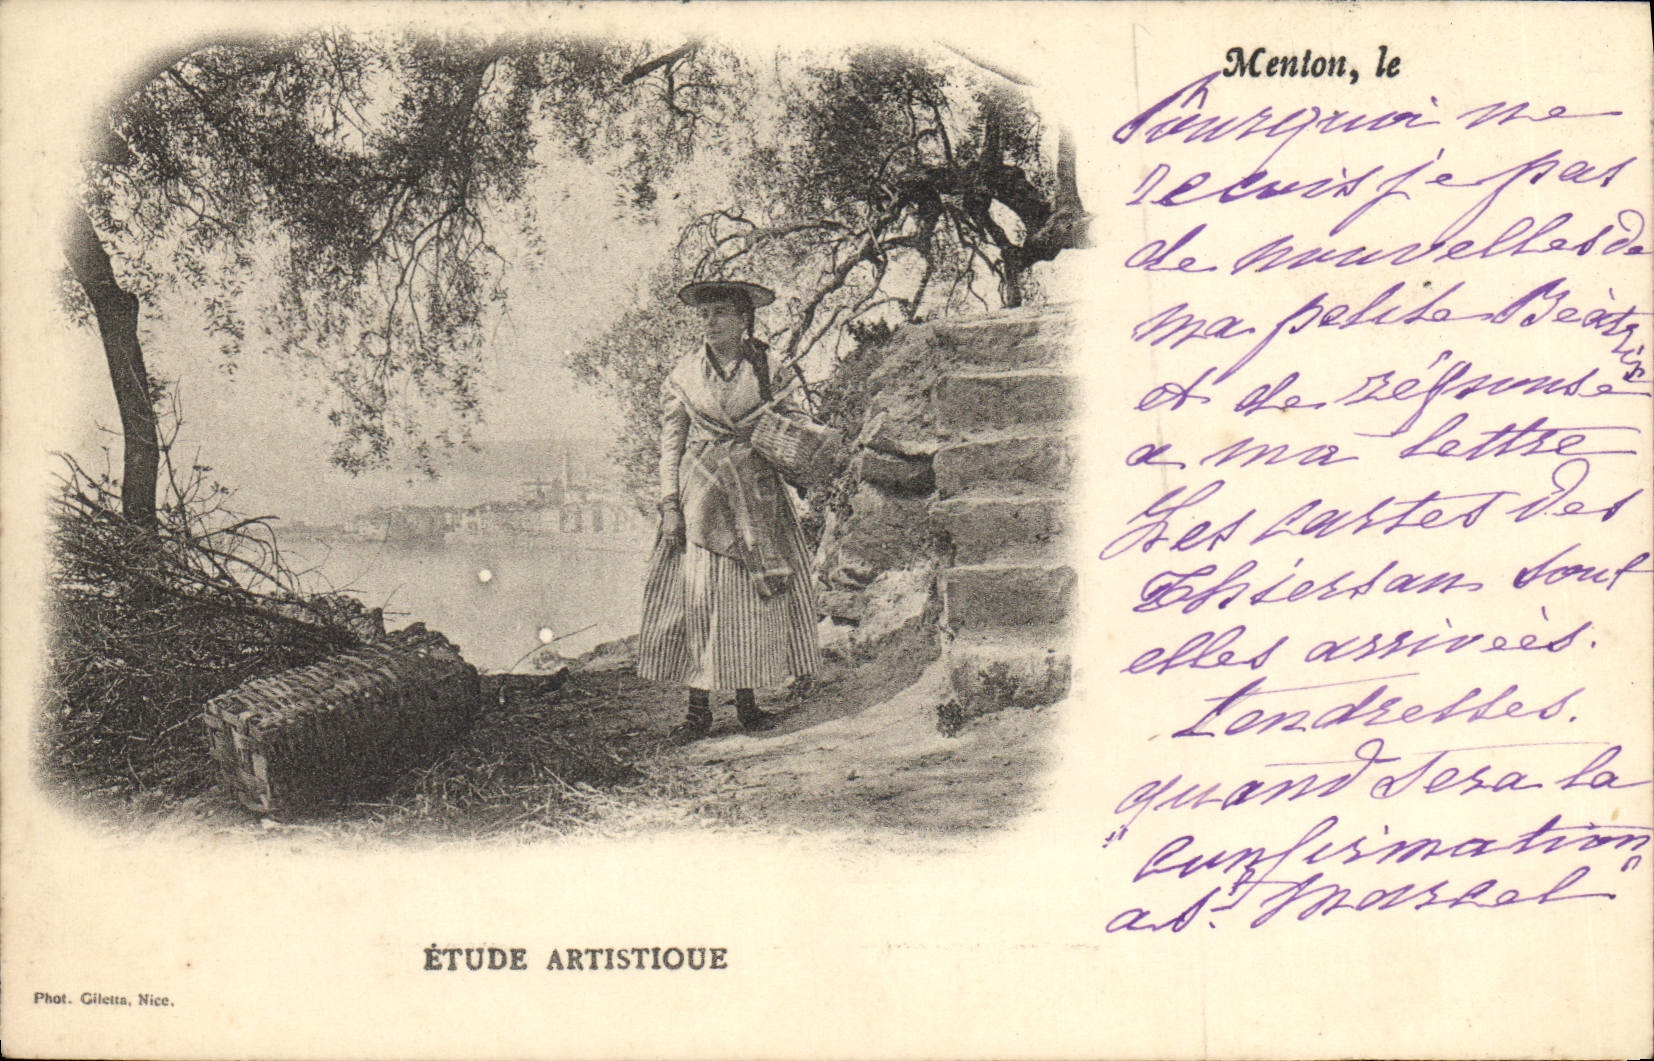 Menton, le
Pourquoi ne
recois je pas
de nouvelles de
ma petite Béatrix
et de réponse
a ma lettre
Les cartes des
sont
elles arriveès.
tendresses.
quand sera la
"confirmation
a St. Marcel"
ÉTUDE ARTISTIQUE
Phot. Giletta, Nice.